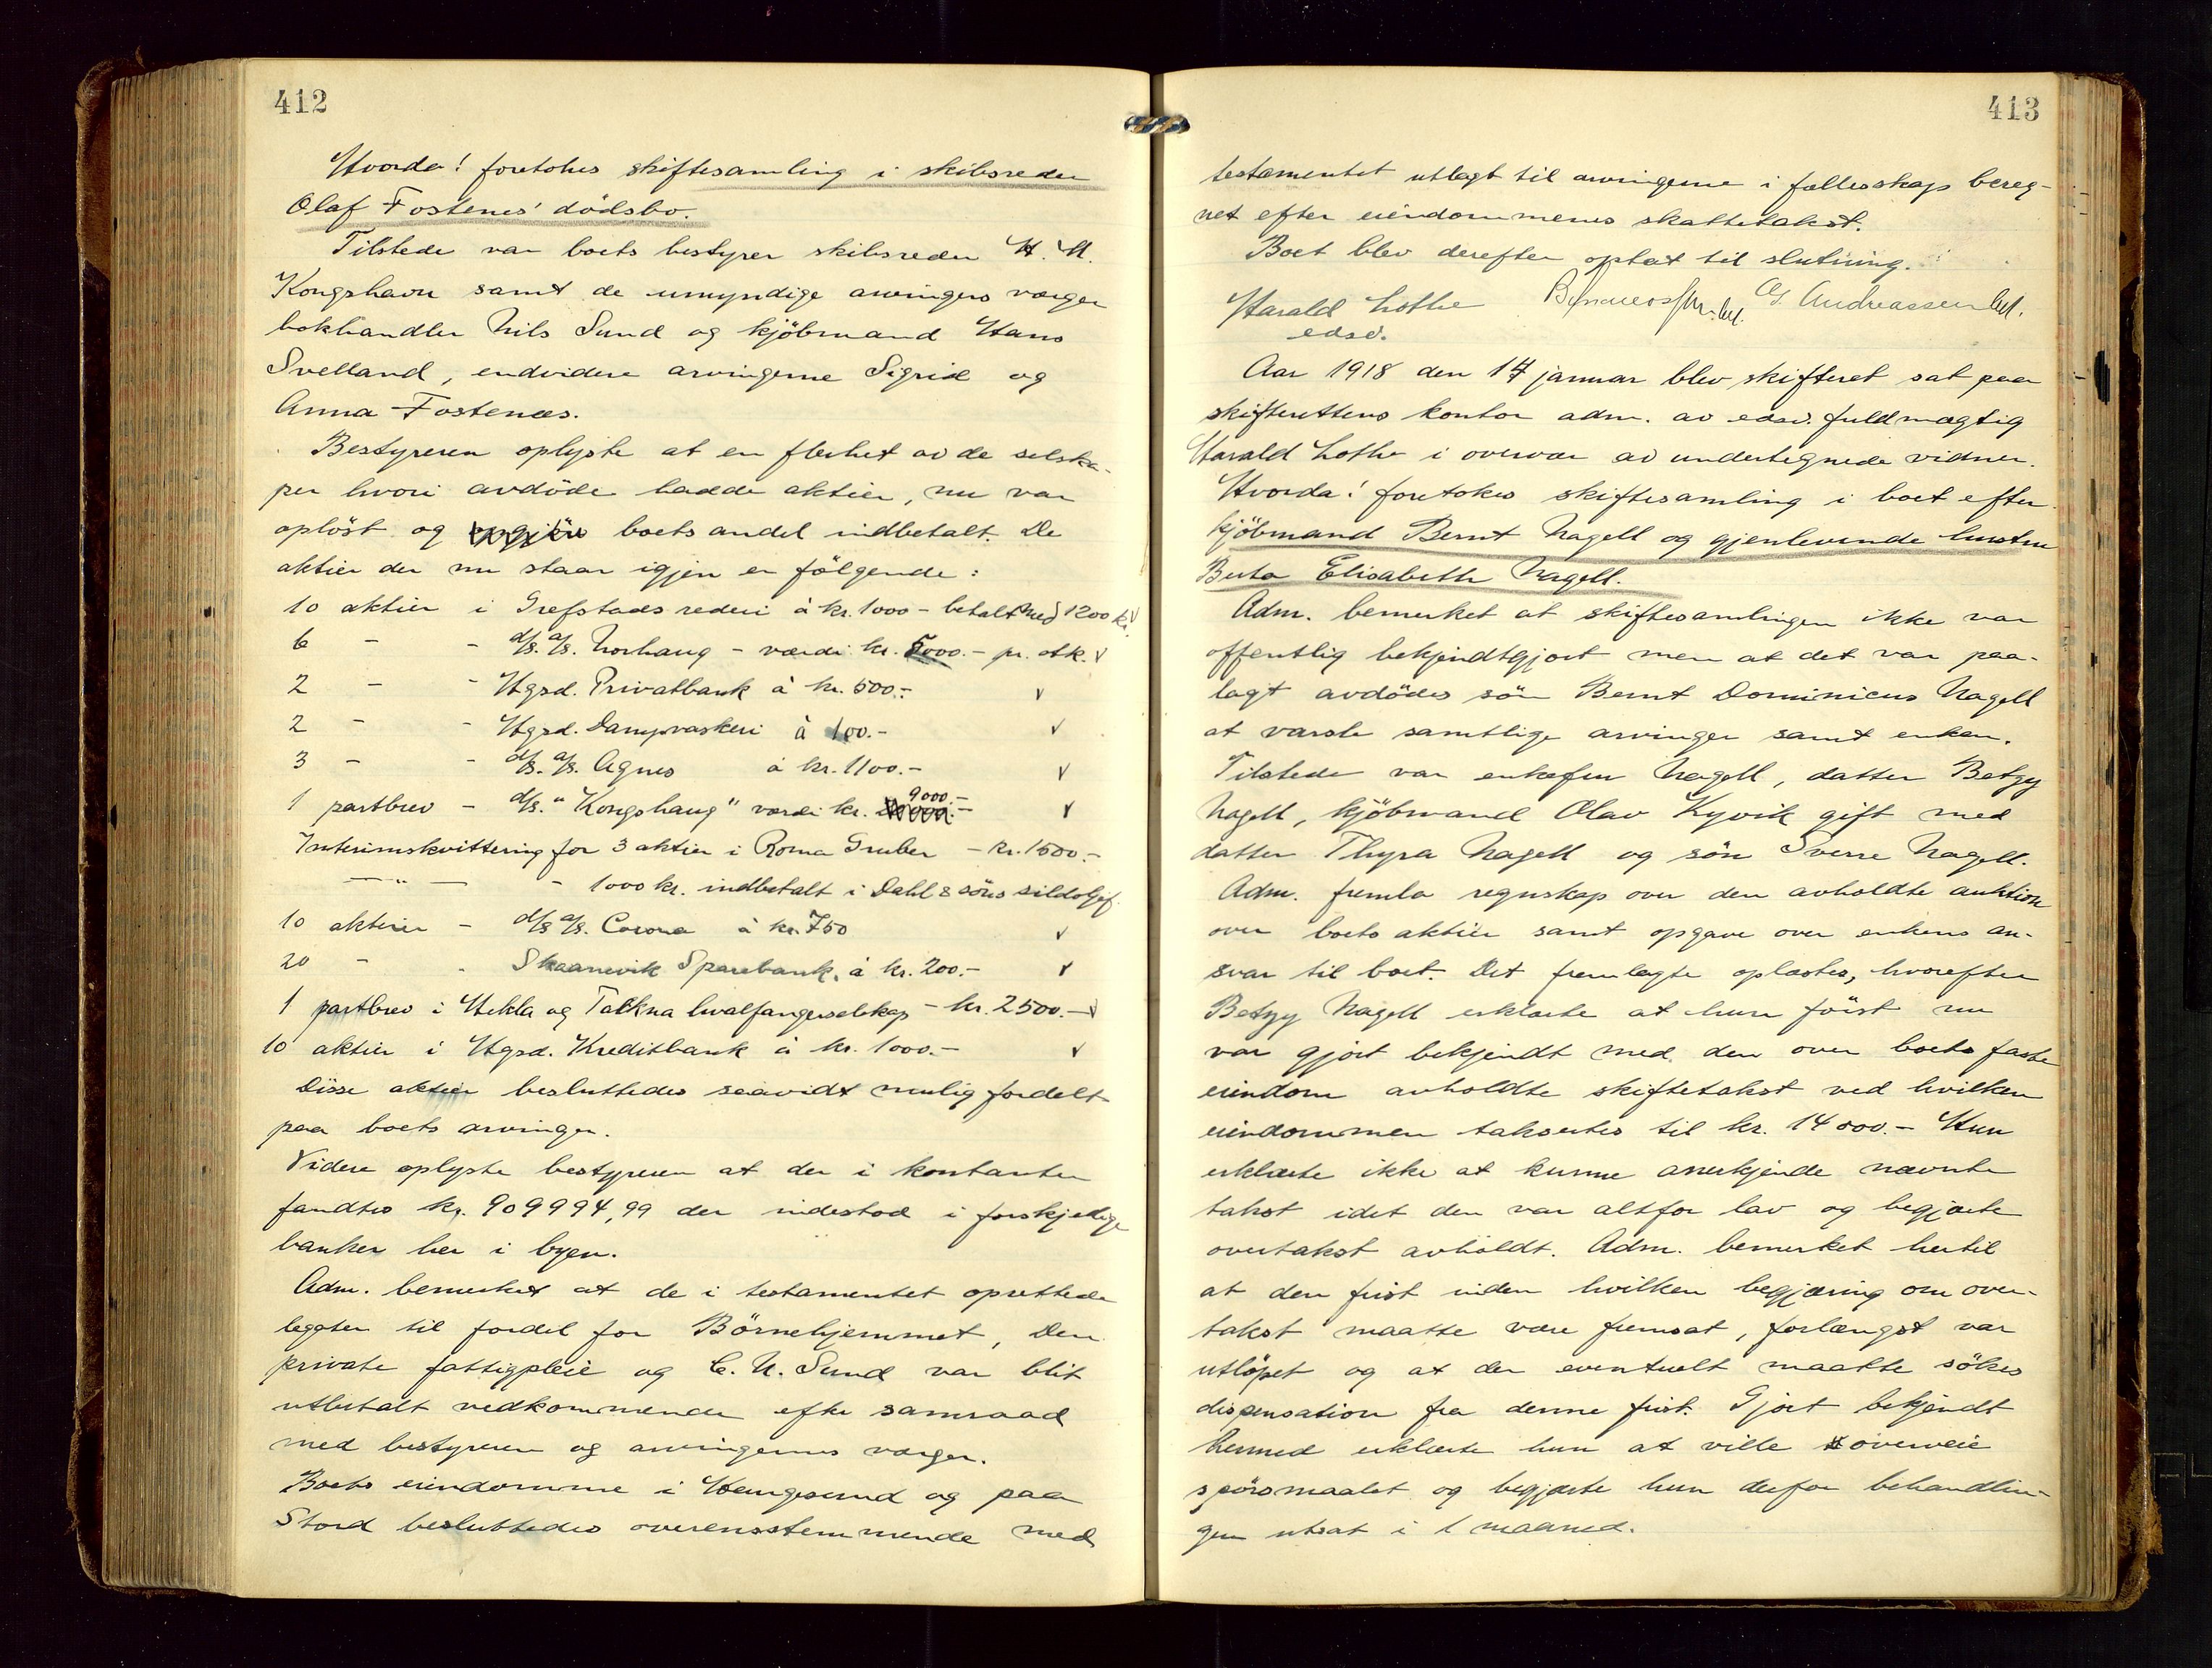 412
Hvorda! foretokes skiftesamling i skibsreder
Olaf Fostenes' dödsbo.
Tilstede var boets bestyrer skibsreder H. M.
Kongshavn samt de umyndige arvingers værger
bokhandler Nils Sund og kjöbmand Hans
Svelland, endvidere arvingerne Sigrid og
Anna Fostenæs.
Bestyreren oplyste at en flerhet av de selska-
per hvori avdöde hadde aktier, nu var
oplöst og boets andel indbetalt. De
aktier der nu staar igjen er fölgende:
10 aktier i Grefstads rederi à kr. 1000 - betalt med 1200 kr. √
6 - - d/s. a/s. Norhaug - værdi kr. 5000.- pr. stk. √
2 - - Hgsd. Privatbank à kr. 500.- √
2 - - Hgsd. Dampvaskeri à 100.- √
3 - - d/s. a/s. Agnes à kr. 1100.- √
1 partbrev - d/s. "Kongshaug" værdi kr. 9000.- √
Interimskvittering for 3 aktier i Roma Gruber - kr. 1500.-
—"— - 1000 kr. indbetalt i Dahl & söns sildoljef.
10 aktier - d/s a/s. Corona à kr. 750 √
20 - - Skaanevik Sparebank, à kr. 200.- √
1 partbrev i Hekla og Talkna hvalfangerselskap - kr. 2500.- √
10 aktier i Hgsd. Kreditbank à kr. 1000.- √
Disse aktier besluttedes saavidt mulig fordelt
paa boets arvinger.
Videre oplyste bestyreren at der i kontanter
fandtes kr. 909994,99 der indestod i forskjellige
banker her i byen.
Adm. bemerket at de i testamentet oprettede
legater til fordel for Börnehjemmet, Den
private fattigpleie og C. N. Sund var blit
utbetalt vedkommende efter samraad
med bestyreren og arvingernes værger.
Boets eiendomme i Haugesund og paa
Stord besluttedes overensstemmende med
413
testamentet utlagt til arvingerne i fællesskap bereg-
net efter eiendommenes skattetakst.
Boet blev derefter optat til slutning.
Harald Lothe Andreassen
edsv.
Aar 1918 den 14 januar blev skifteret sat paa
skifterettens kontor adm. av edsv. fuldmægtig
Harald Lothe i overvær av undertegnede vidner.
Hvorda! foretokes skiftesamling i boet efter
kjöbmand Bernt Nagell og gjenlevende hustru
Berta Elisabeth Nagell.
Adm. bemerket at skiftesamlingen ikke var
offentlig bekjendtgjort men at det var paa-
lagt avdödes sön Bernt Dominicus Nagell
at varsle samtlige arvinger samt enken.
Tilstede var enkefru Nagell, datter Betzy
Nagell, kjöbmand Olav Kyvik gift med
datter Thyra Nagell og sön Sverre Nagell.
Adm. fremla regnskap over den avholdte auktion
over boets aktier samt opgave over enkens an-
svar til boet. Det fremlagte oplæstes, hvorefter
Betzy Nagell erklærte at hun först nu
var gjort bekjendt med den over boets faste
eiendom avholdte skiftetakst ved hvilken
eiendommen takseres til kr. 14000.- Hun
erklærte ikke at kunne anerkjende nævnte
takst idet den var altfor lav og begjærte
overtakst avholdt. Adm. bemerket hertil
at den frist inden hvilken begjæring om over-
takst maatte være fremsat, forlængst var
utlöpet og at der eventuelt maatte sökes
dispensation fra denne frist. Gjort bekjendt
hermed erklærte hun at ville overveie
spörsmaalet og begjærte hun derfor behandlin-
gen utsat i 1 maaned.